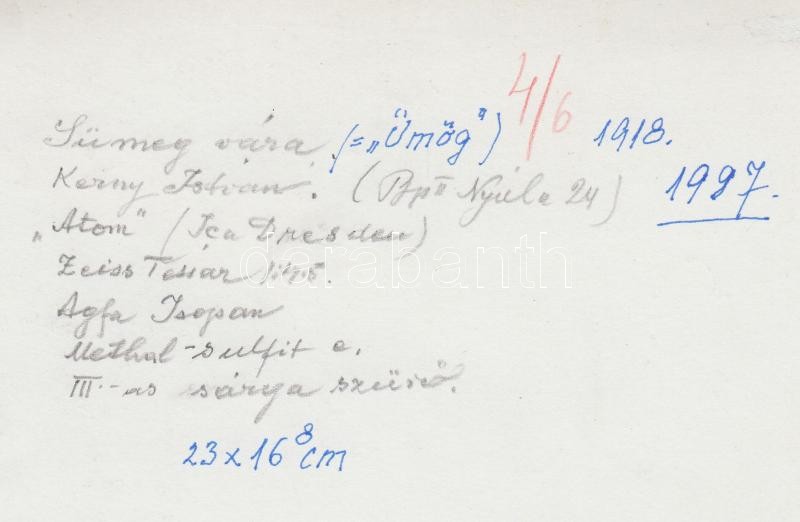 4/6
Sümeg vára (= „Ümög") 1918.
Kerny István. (Bp II Nyúl u 24) 1997.
„Atom" (Ica Dresden)
Zeiss Tessar 1:4.5.
Agfa Isopan
Methal-sulfit e.
III.-as sárga szürő.
23x16⁸ cm
darabanth